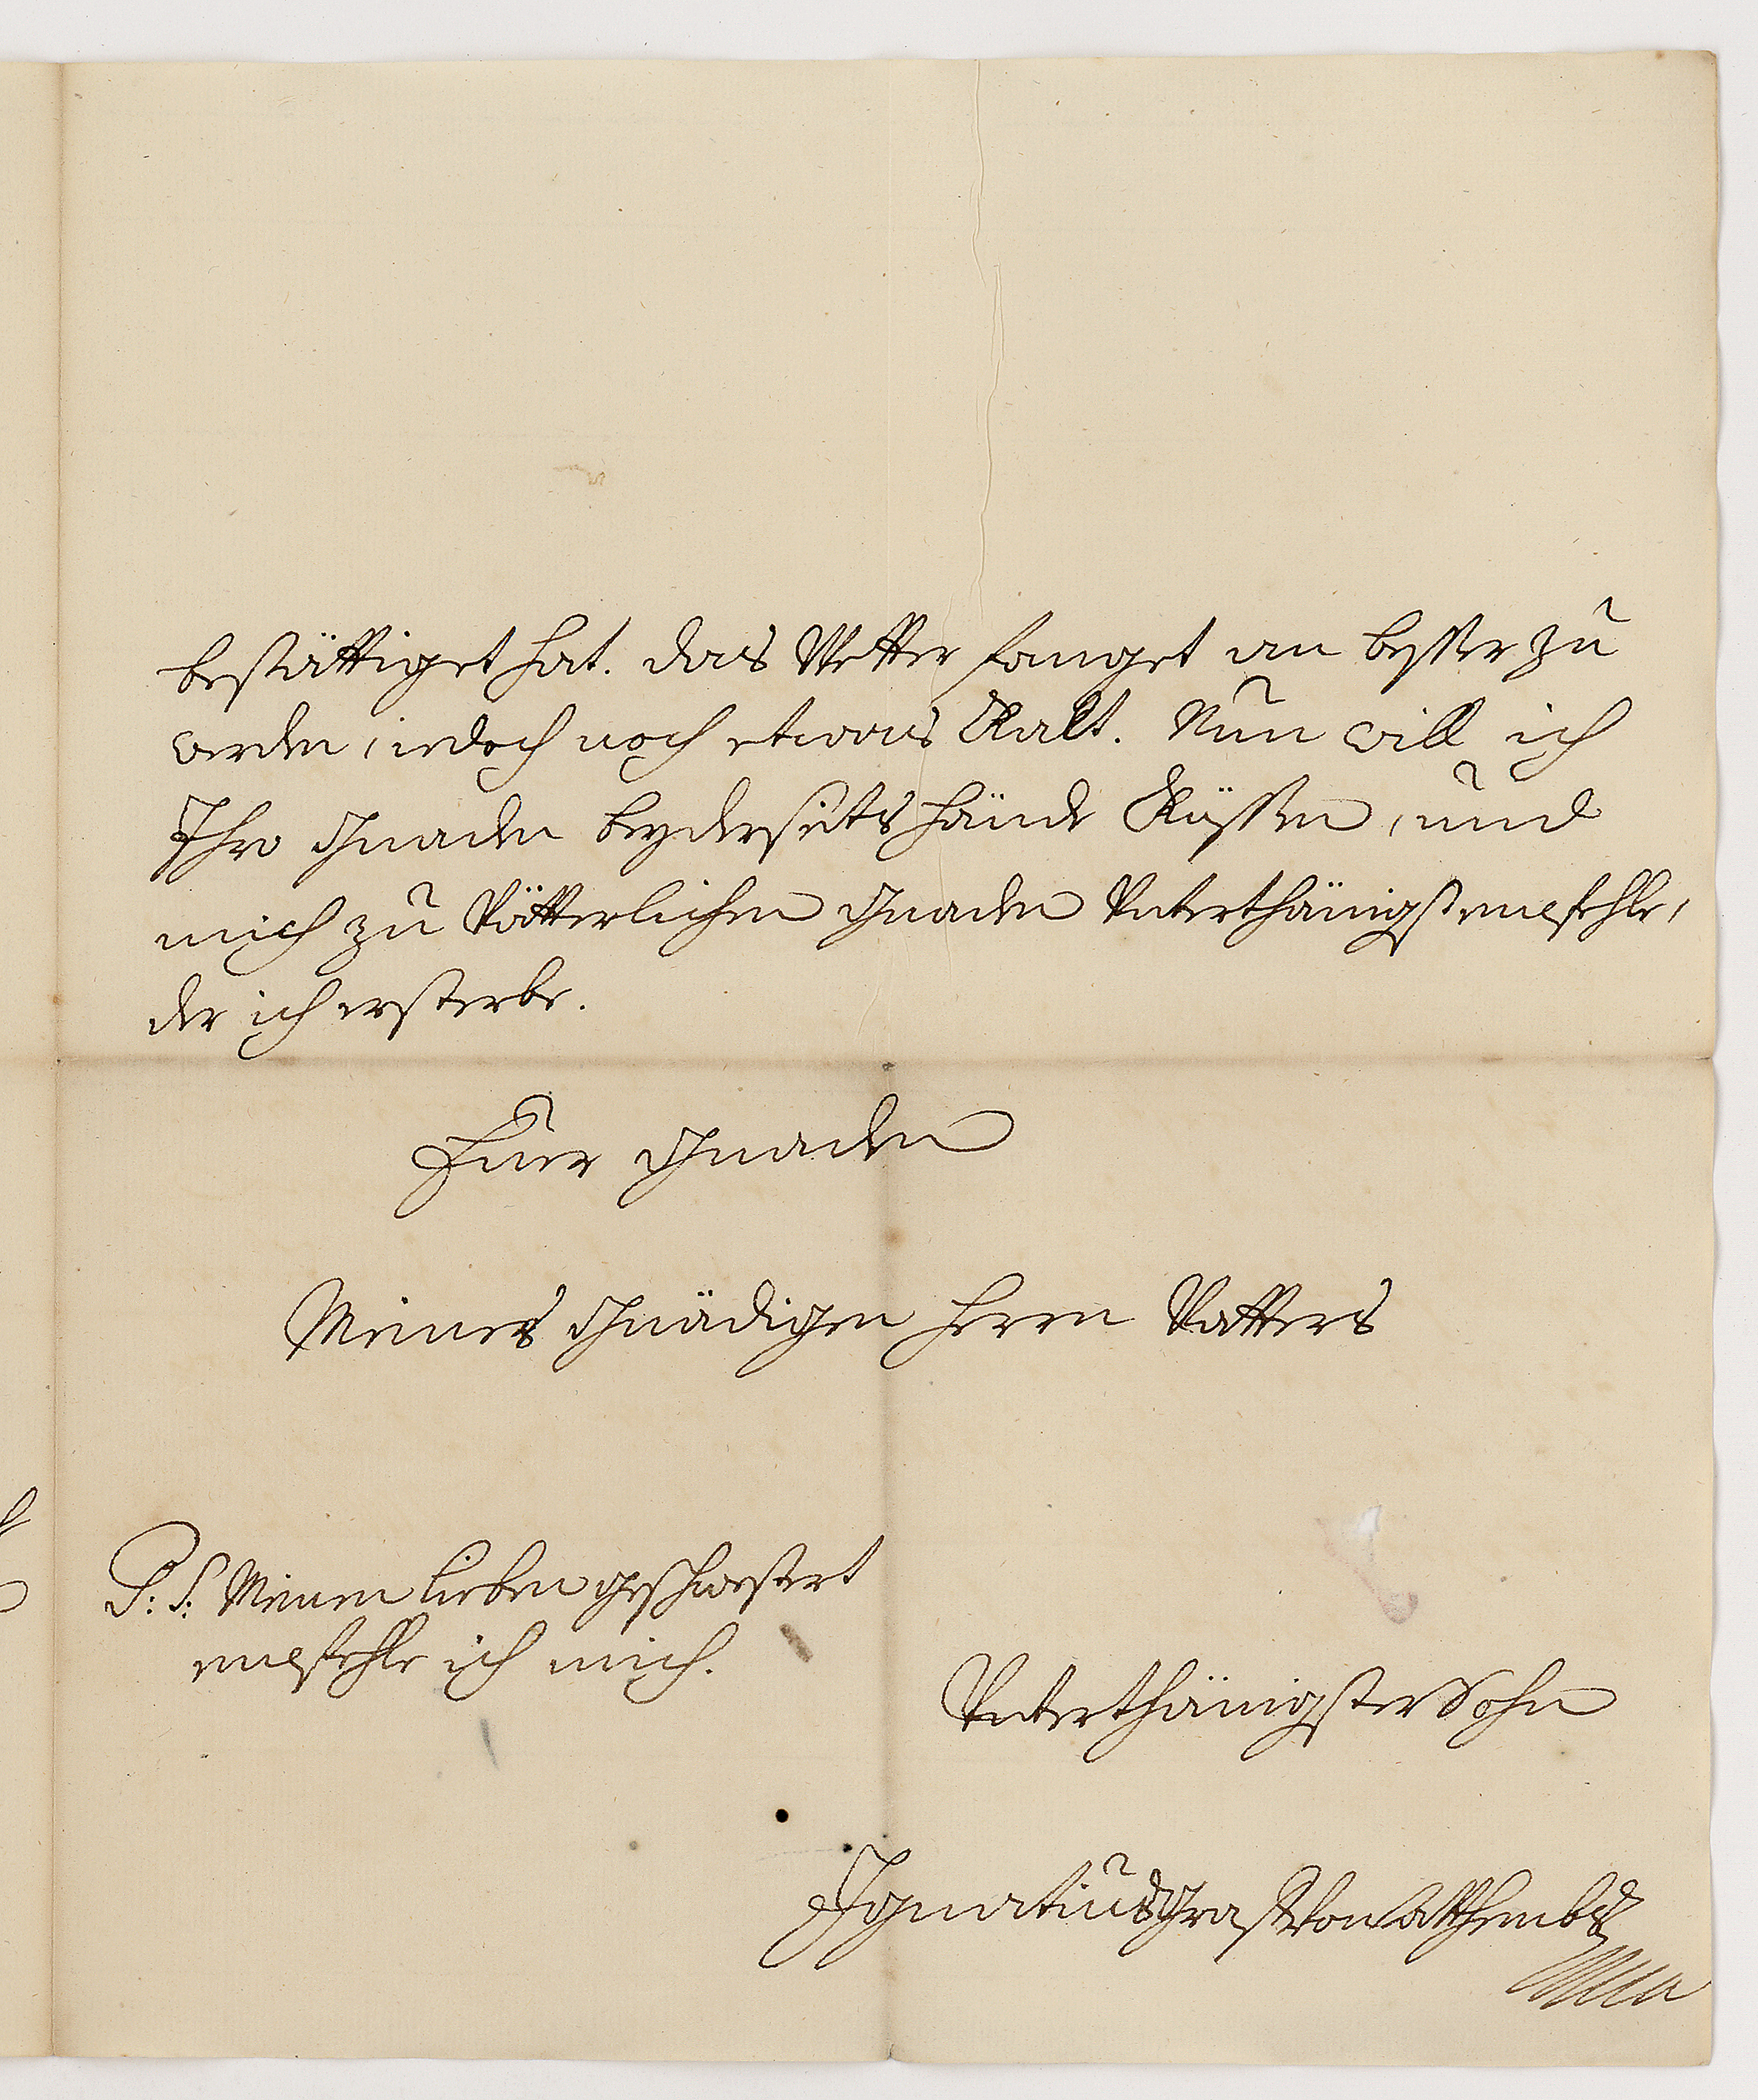 bestättiget hat. das Wetter fanget an besser zu
werden, iedoch noch etwas Kalt. Nun will ich
Ihro Gnaden beyderseits hände Küssen, und
mich zu Vätterlichen Gnaden Unterthänigst empfehle,
der ich ersterbe.
Euer Gnaden
Meines Gnädigen Herrn Vatters
P: S: Meinen lieben geschwestert
empfehle ich mich.
Unterthänigster Sohn
Ignatius Graf Von Atthembs